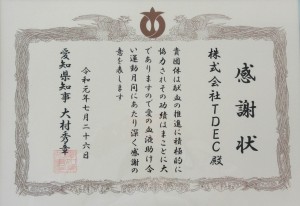 感謝状
株式会社TDEC殿
貴団体は献血の推進に積極的に
協力されその功績はまことに大
でありますので愛の血液助け合
い運動月間にあたり深く感謝の
意を表します
令和元年七月二十六日
愛知県知事 大村秀章